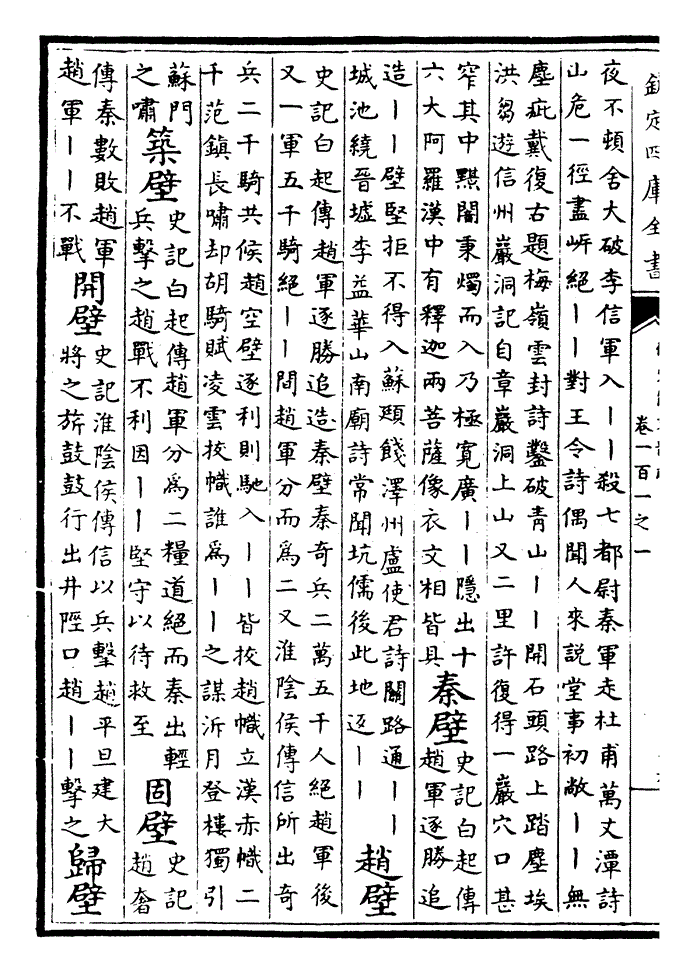 欽定四庫全書
卷一百一之一
夜不頓舍大破李信軍入丨丨殺七都尉秦軍走杜甫萬丈潭詩
山危一徑盡岍絕丨丨對王令詩偶聞人來説堂事初敞丨丨無
塵疵戴復古題梅嶺雲封詩鑿破青山丨丨開石頭路上踏塵埃
洪芻遊信州巖洞記自章巖洞上山又二里許復得一巖穴口甚
窄其中闇秉燭而入乃極寛廣丨丨隱出十
六大阿羅漢中有釋迦兩菩薩像衣文相皆具
秦壁
史記白起傳
趙軍逐勝追
造丨丨壁堅拒不得入蘇頲餞澤州盧使君詩關路通丨丨
城池繞晉墟李益華山南廟詩常聞坑儒後此地返丨丨
趙壁
史記白起傳趙軍逐勝追造秦壁秦奇兵二萬五千人絕趙軍後
又一軍五千騎絕丨丨間趙軍分而爲二又淮陰侯傳信所出奇
兵二千騎共候趙空壁逐利則馳入丨丨皆拔趙幟立漢赤幟二
千范鎮長嘯却胡騎賦凌雲拔幟誰爲丨丨之謀泝月登樓獨引
蘇門
之嘯
築壁
史記白起傳趙軍分爲二糧道絕而秦出輕
兵擊之趙戰不利因丨丨堅守以待救至
固壁
史記
趙奢
傳秦數敗趙軍
趙軍丨丨不戰
開壁
史記淮陰侯傳信以兵擊趙平旦建大
將之旂鼓鼓行出井陘口趙丨丨擊之
歸壁